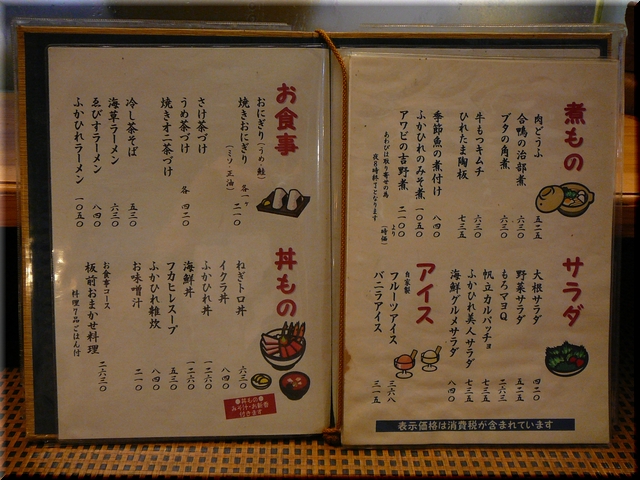 煮もの
肉どうふ 五二五
合鴨の治部煮 六三〇
ブタの角煮 六三〇
牛もつキムチ 六三〇
ひれたま陶板 七三五
季節魚の煮付け 八四〇
ふかひれのみそ煮 一〇五〇
アワビの吉野煮 二一〇〇より(時価)
あわびは取り寄せの為
夜8時終了となります
サラダ
大根サラダ 四二〇
野菜サラダ 五二五
もろマヨQ 二六三
帆立カルパッチョ 七三五
ふかひれ美人サラダ 七三五
海鮮グルメサラダ 八四〇
アイス
自家製
フルーツアイス 三六八
バニラアイス 三一五
表示価格は消費税が含まれています
お食事
おにぎり(うめ・鮭) 各一ヶ
焼きおにぎり(ミソ・正油) 二一〇
さけ茶づけ
うめ茶づけ 各 四二〇
焼きオニ茶づけ
冷し茶そば 五三〇
海草ラーメン 六三〇
ゑびすラーメン 八四〇
ふかひれラーメン 一〇五〇
丼もの
ねぎトロ丼 六三〇
イクラ丼 八四〇
ふかひれ丼 一二六〇
海鮮丼 一二六〇
フカヒレスープ 五三〇
ふかひれ雑炊 八四〇
お味噌汁 二一〇
お食事コース
板前おまかせ料理 二六三〇
料理7品ごはん付
●丼もの●
みそ汁・お新香
付きます